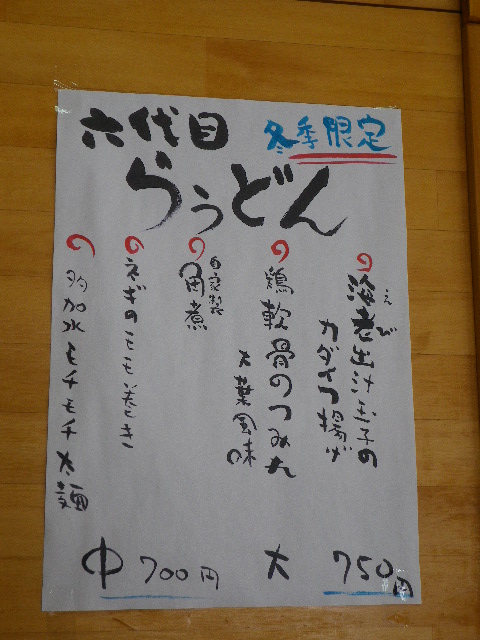 六代目
冬季限定
らぅどん
海老出汁玉子の
えび
カダイフ揚げ
鶏軟骨のつみれ
大葉風味
自家製
角煮
ネギのモモ巻き
多加水モチモチ太麺
中 700円
大 750円